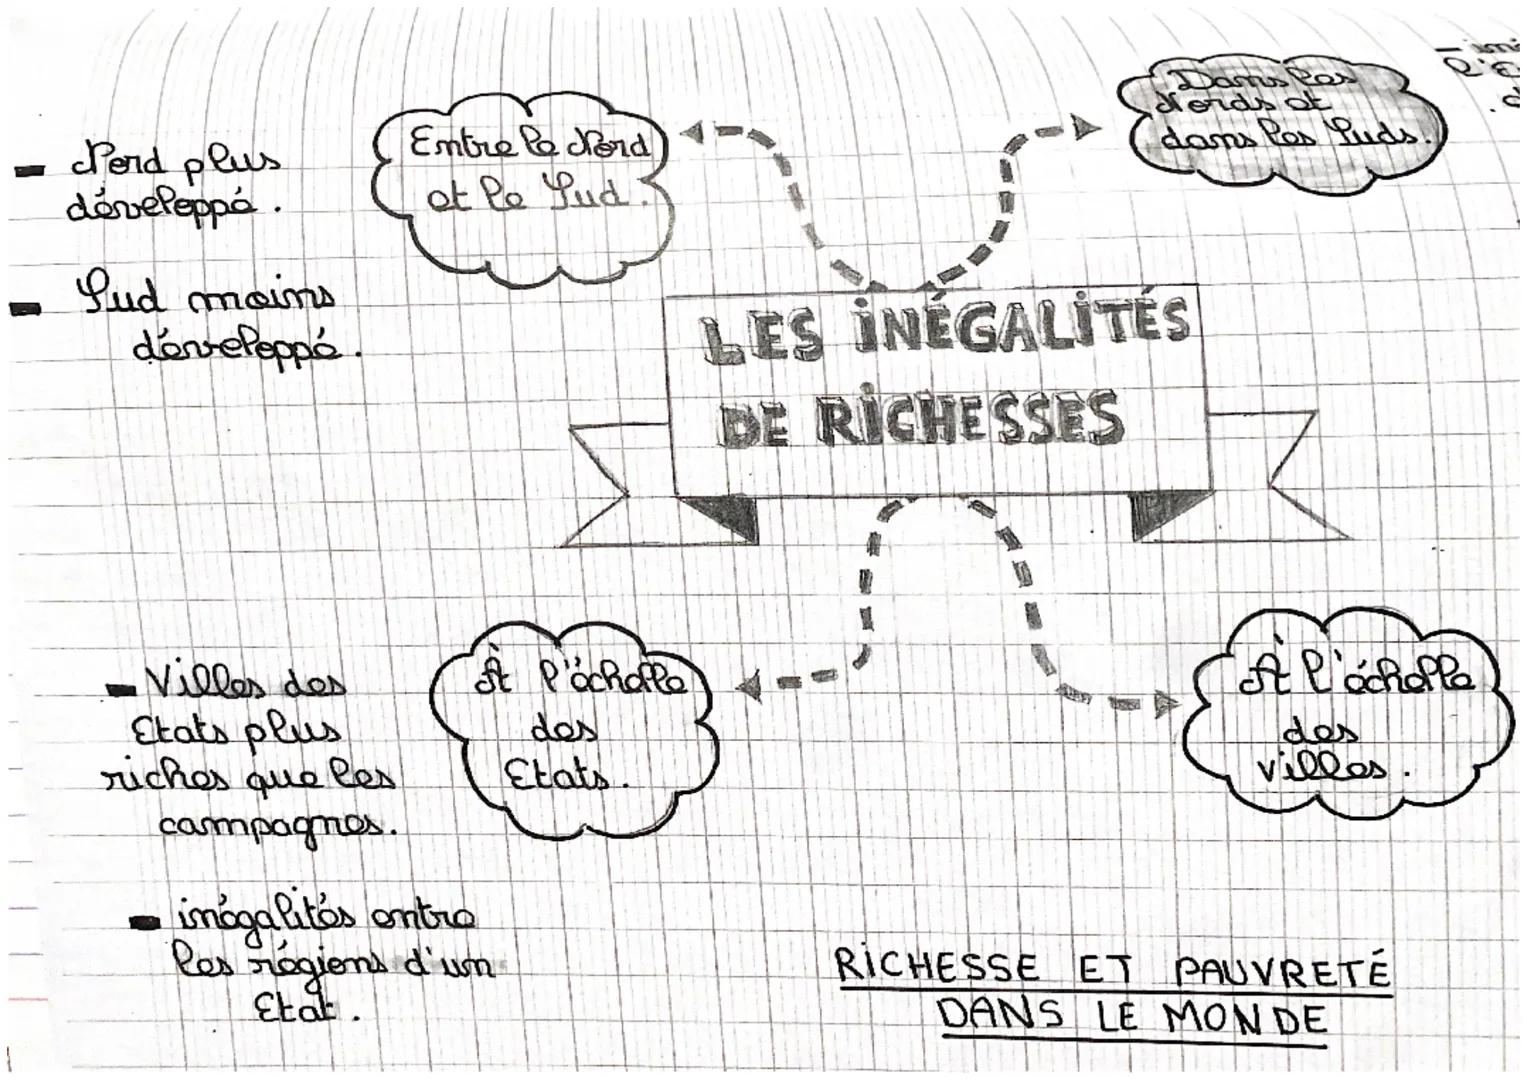 - Nord plus
développé.
- Sud moins
développé.
Entre le Nord
et le Sud.
Dans les
Nords et
dans les Suds.
LES INÉGALITÉS
DE RICHESSES
- Villes des
Etats plus
riches que les
campagnes.
- inégalités entre
les régions d'un
Etat.
À l'échelle
des
Etats.
À l'échelle
des
villes.
RICHESSE ET PAUVRETÉ
DANS LE MONDE